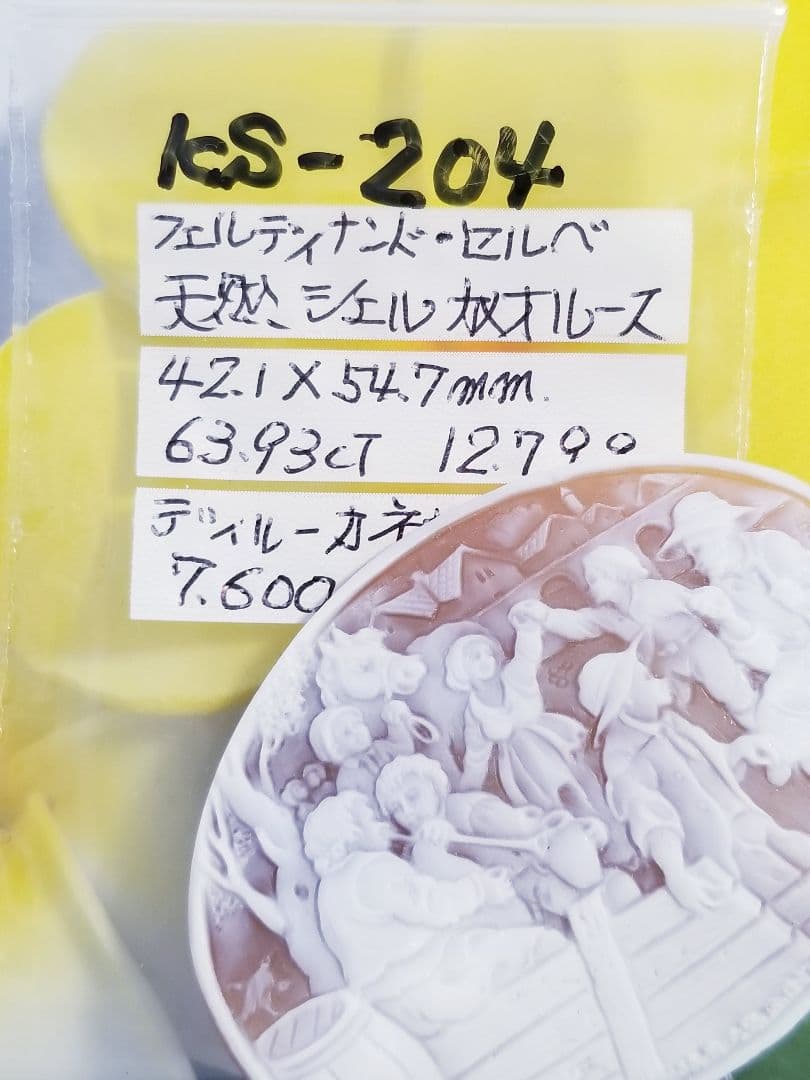 KS-204
フェルディナンド・セルベ
天然シェルカメオルース
42.1×54.7mm
63.93CT 12.79g
ディルーカネ
7.600